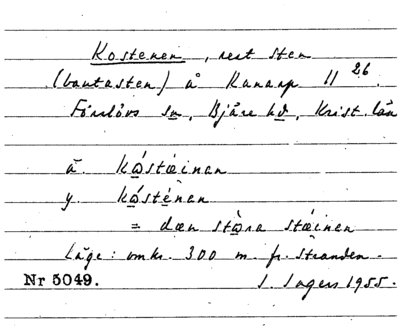 Kostenen, rest sten
(bautasten) å Kararp 11 26.
Förslövs sn, Bjäre hd, Krist. län
ä. kǻstæinan
y. kǻsténan
= dæn stɷra stæinen
Läge: omkr. 300 m fr. stranden.
Nr 5049. I. Ingers 1955.